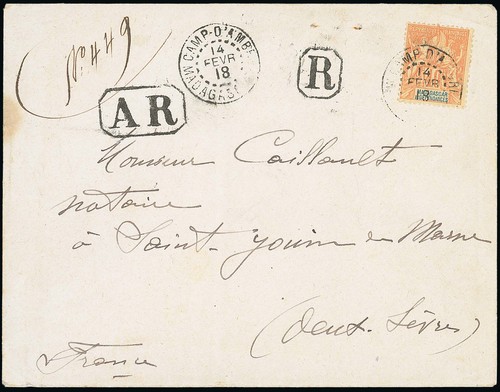 No 449
CAMP-D'AMBRE
14
FEVR
18
MADAGASCAR
R
CAMP-D'AMBRE
14
FEVR
18
MADAGASCAR
DEPENDANCES
AR
Monsieur Caillault
notaire
à Saint-Jouin en Marne
(Deux-Sèvres)
France